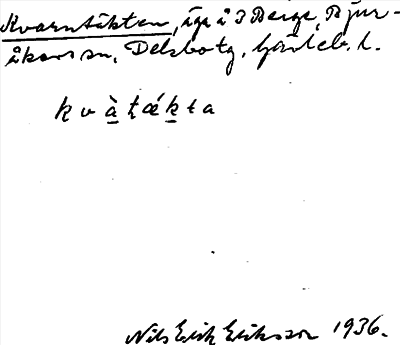 Kvarntäkten, äga å 3 Berge, Bjur-
åkers sn, Delsbo tg, Gävleb. l.
k v à t ǽ k t a
Nils Erik Eriksson 1936.